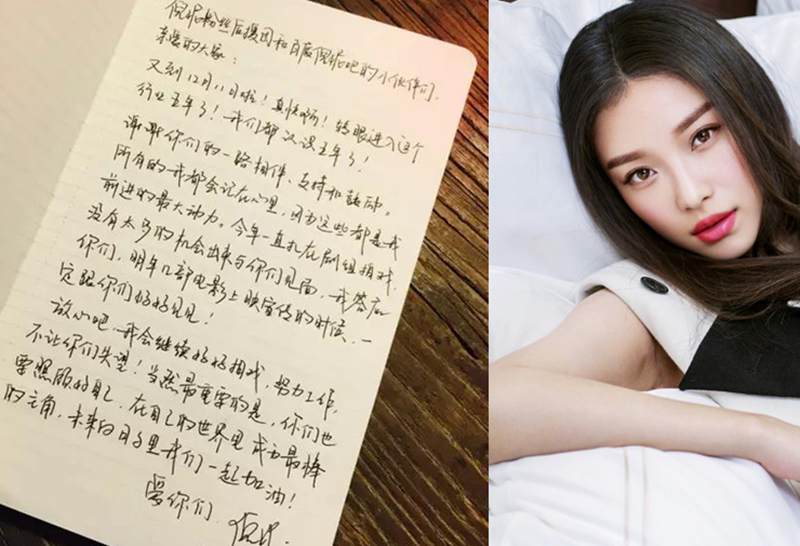 倪妮粉丝后援团和百度倪妮吧的小伙伴们,
亲爱的大家:
又到12月11日啦!真快呀!转眼进入这个
行业五年了!我们都认识五年了!
谢谢你们的一路相伴、支持和鼓励。
所有的一切都会记在心里,因为这些都是我
前进的最大动力。今年一直扎在剧组拍戏,
没有太多的机会出来与你们见面,我答应
你们,明年几部电影上映宣传的时候,一
定跟你们好好见见!
放心吧,我会继续好好拍戏,努力工作,
不让你们失望!当然最重要的是,你们也
要照顾好自己,在自己的世界里成为最棒
的主角,未来的日子里我们一起加油!
爱你们 倪妮.